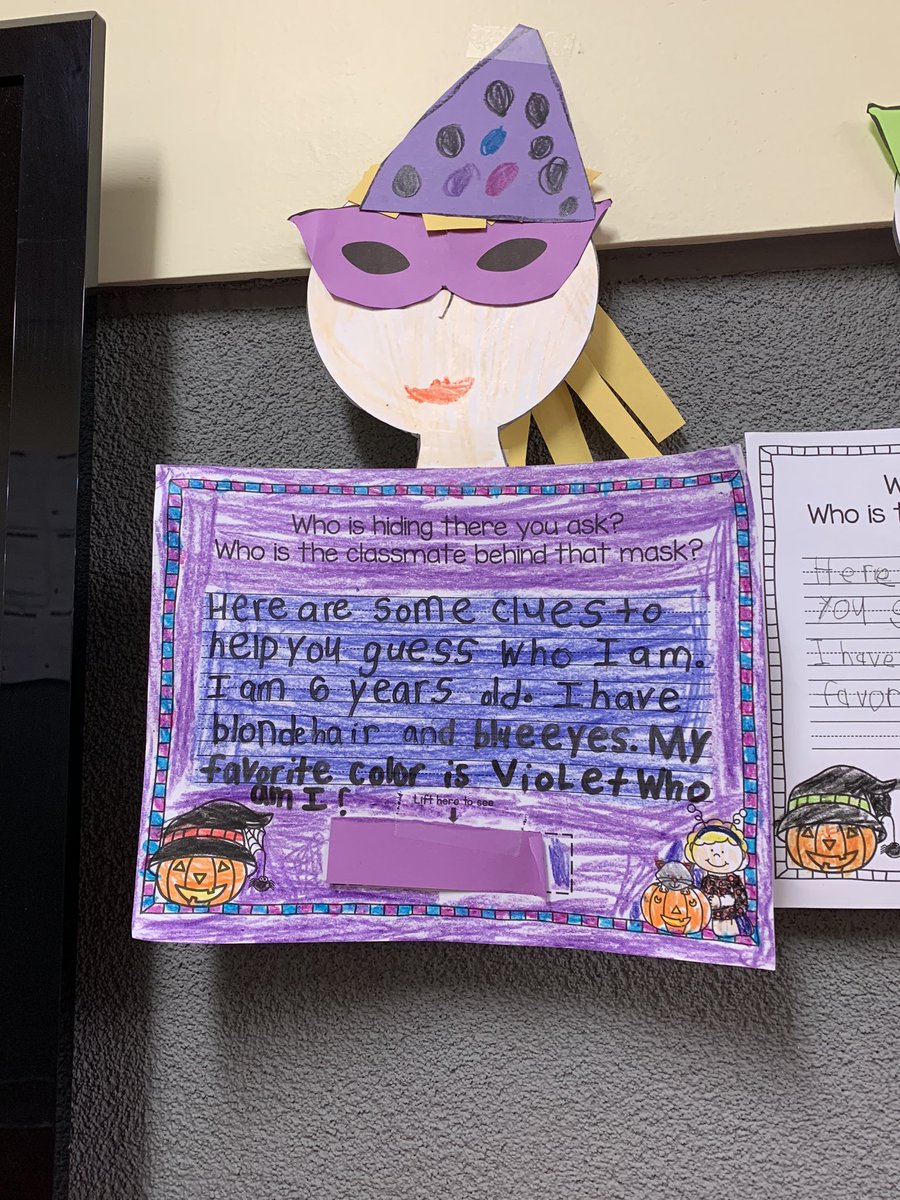 Who is hiding there you ask?
Who is the classmate behind that mask?
Here are some clues to
help you guess who I am.
I am 6 years old. I have
blonde hair and blue eyes. My
favorite color is Violet Who
am I?
Lift here to see
W
Who is t
Here
you g
I have
favor